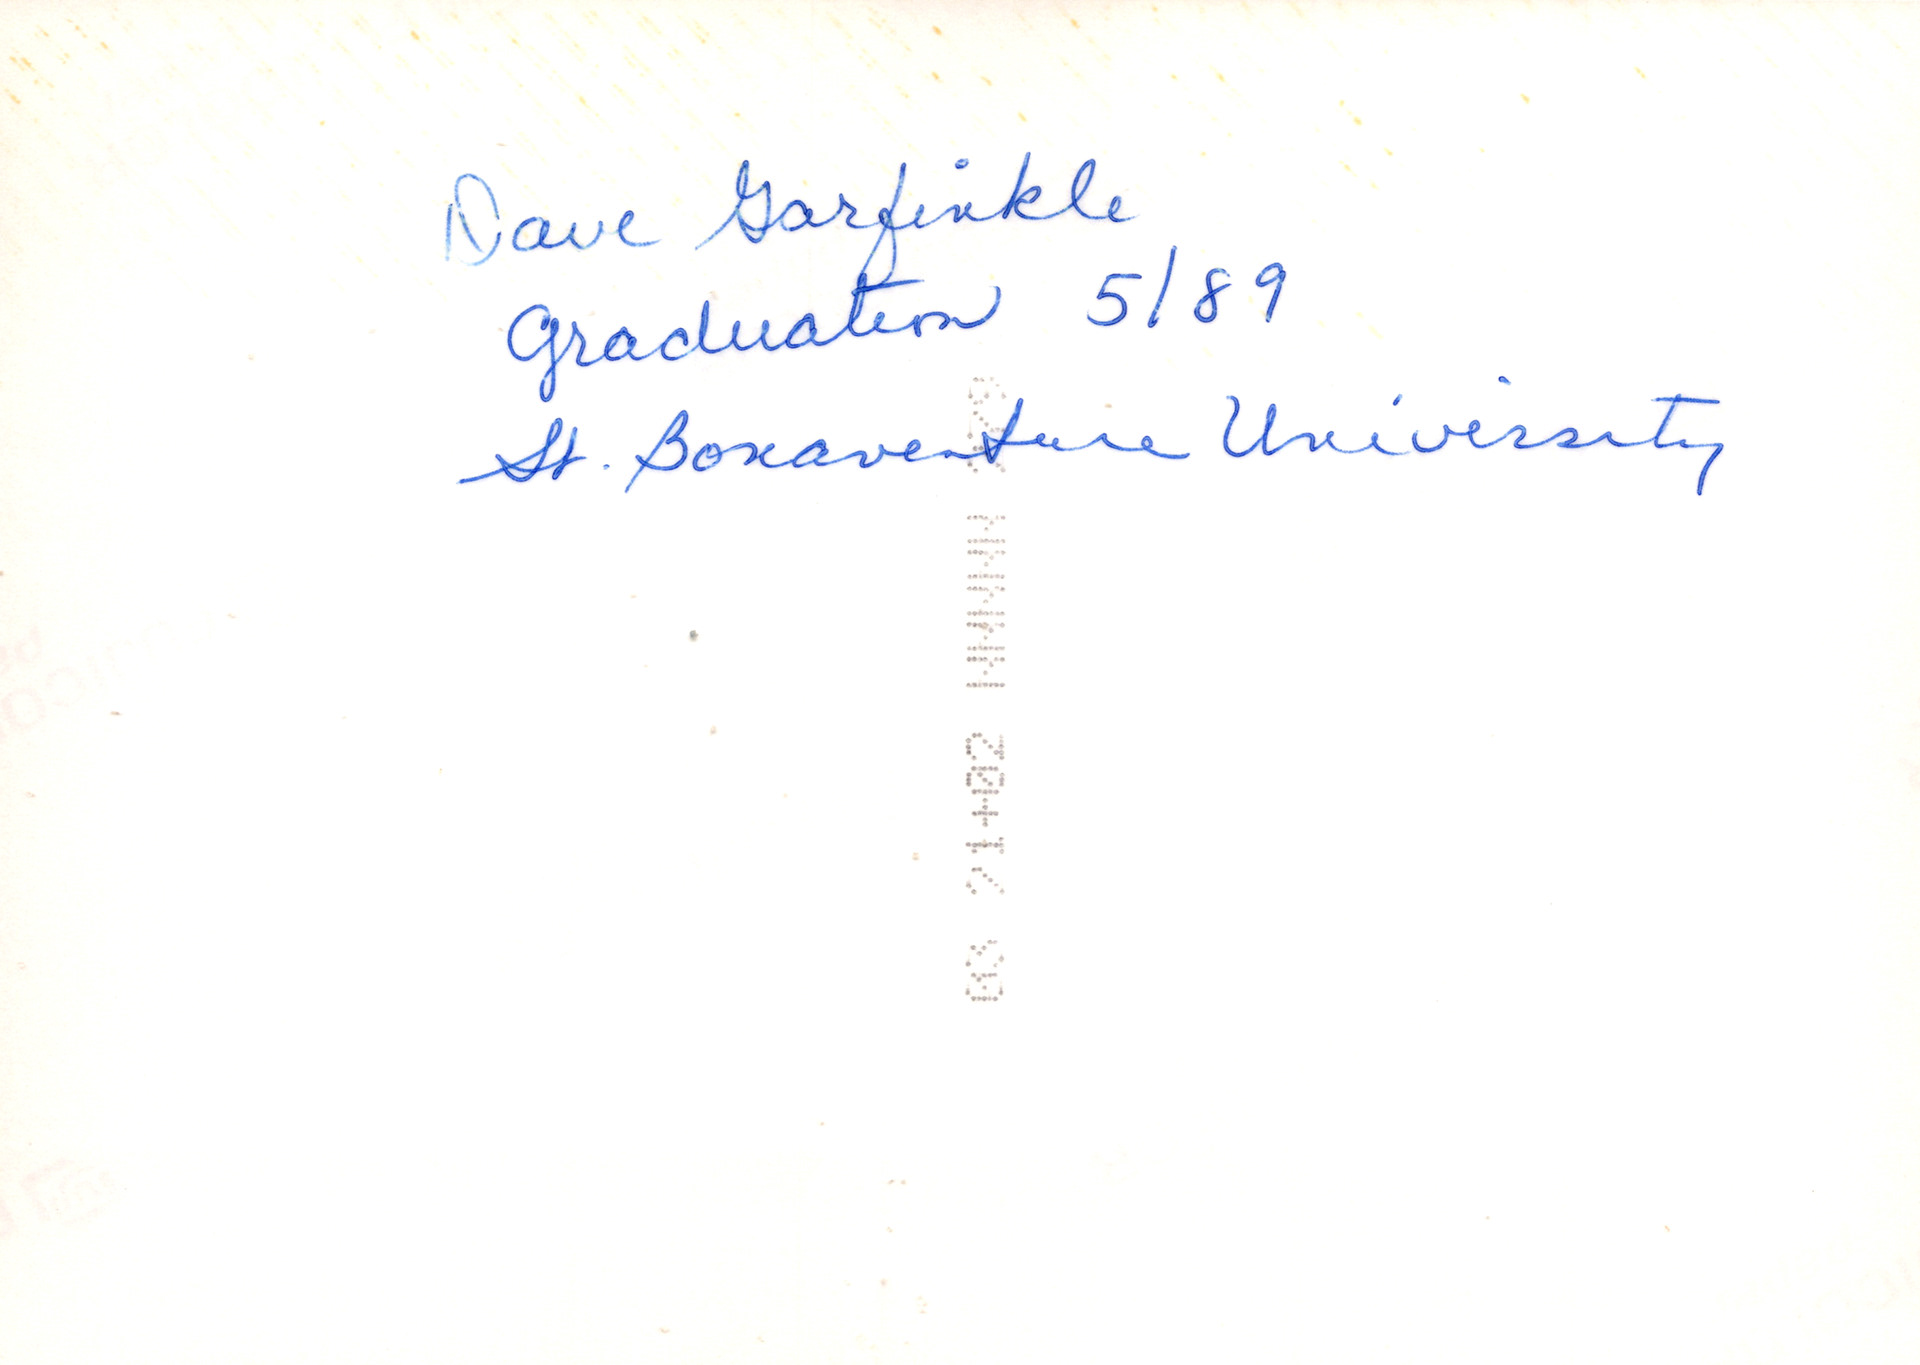 Dave Garfinkle
Graduation 5/89
St. Bonaventure University